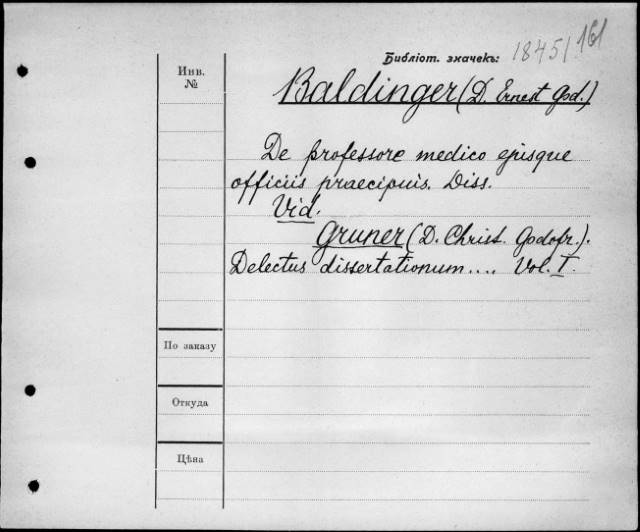 Библіот. значекъ: 18451/161
Инв.
№
Baldinger (D. Ernest God.)
De professore medico ejusque
officiis praecipuis. Diss.
Vid.
Gruner (D. Christ. Godofr.).
Delectus dissertationum.... Vol. I.
По заказу
Откуда
Цѣна